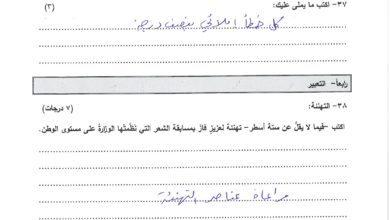 ٣٧- اكتب ما يملى عليك: (٣)
كل خطأ املائي بنصف درجة
رابعاً- التعبير
٣٨- التهنئة: (٧ درجات)
اكتب -فيما لا يقلّ عن ستة أسطر- تهنئة لعزيزٍ فاز بمسابقة الشعر التي نظّمتْها الوزارةُ على مستوى الوطن.
مراعاة عناصر التهنئة